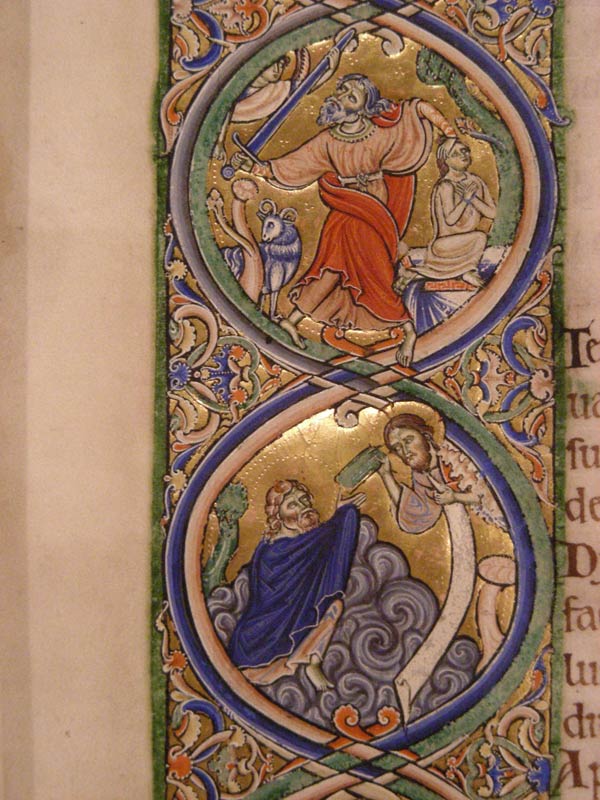 Te
ua
ſu
de
D
fa
lu
di
Ap